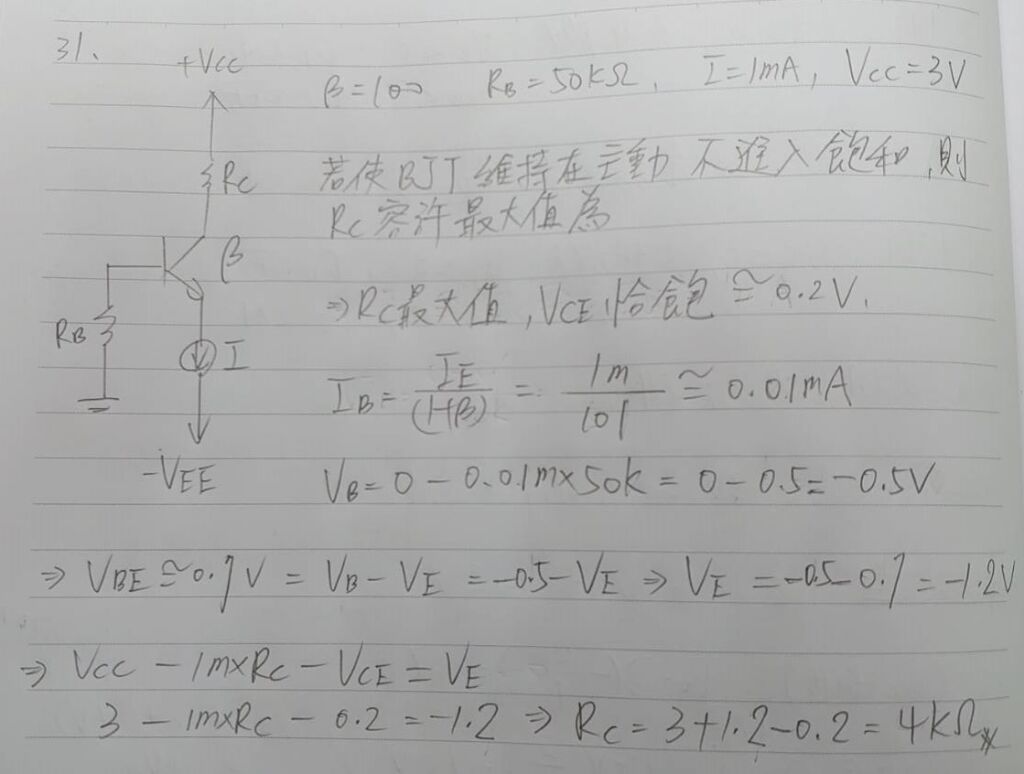 31.
+Vcc
β=100 RB=50kΩ, I=1mA, Vcc=3V
Rc
若使BJT維持在主動 不進入飽和,則
Rc容許最大值為
β
⇒Rc最大值,VCE恰飽≅0.2V,
RB
I
IB=IE/(1+β) = 1m/101 ≅ 0.01mA
-VEE
VB=0-0.01m×50k=0-0.5=-0.5V
⇒ VBE≅0.7V = VB-VE =-0.5-VE ⇒ VE =-0.5-0.7=-1.2V
⇒ Vcc -1m×Rc-VCE=VE
3 -1m×Rc- 0.2 =-1.2 ⇒ Rc=3+1.2-0.2=4kΩ※